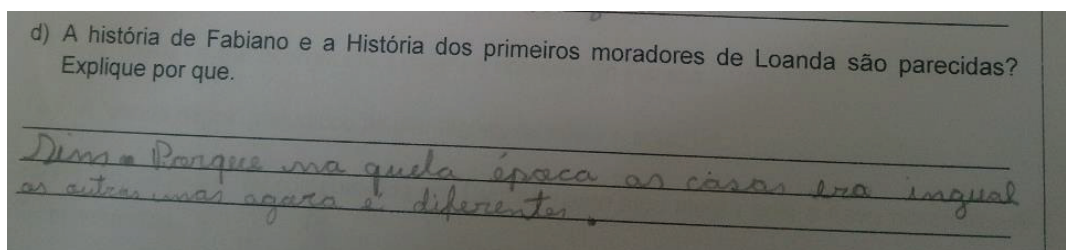 d) A história de Fabiano e a História dos primeiros moradores de Loanda são parecidas?
Explique por que.
Sim - Porque na quela época as casas era ingual
as outras mas agora é diferentes.